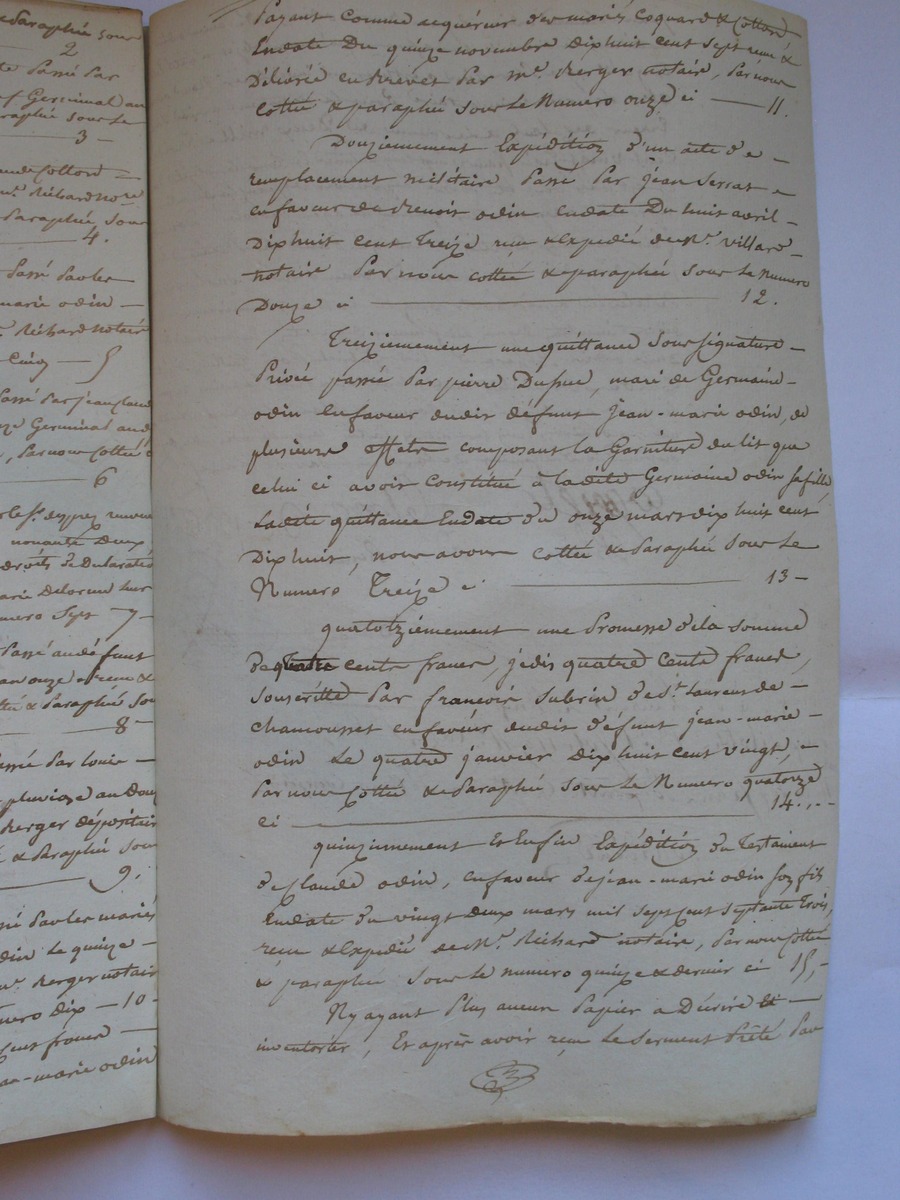 Paraphé sous
2
te Passé Par
f Germinal an
paraphé sous Le
3 —
aude Cottond —
me. Richard nore
Paraphé, Sous
4.
Passé Par les
marie odin —
Richard notaire
Cinq — 5
Passé Par jean Claud
Germinal and
, Par nous Cottée
6
nonante deux
droits de Declaratio
arie Delorme sur
umero Sept 7 —
Passé au défunt
an onze
Cottée & Paraphé Sou
8 —
Passé Par Louis —
pluviose an Dou
Rerger dépositair
& Paraphé Sou
9,
Par les mariés
din Le quinze —
me. Rerger notair
mero Dix — 10 —
Cent francs —
an-marie odin
Payant Comme acquéreur des mariés Coquard & Cottond
En date Du quinze novembre Dix huit cent Sept reçue &
Délivrée en Brevet Par me. Rerger notaire, Par nous
Cottée & paraphé Sous Le Numero onze ci — 11.
Douziemement Expédition d'un acte de —
remplacement militaire Passé Par jean Serrat
en faveur de Benoit odin en date Du huit avril —
Dix huit Cent Treize reçu & Expedié de Me. Villard
notaire Par nous cottée & paraphé Sous Le Numero
Douze ci — 12.
Treiziemement une quittance Sous signature —
Privée passée Par pierre Dupué, mari de Germaine —
odin en faveur dudit défunt jean-marie odin, de
plusieurs effets composant la Garniture du lit que
celui ci avoit Constitué à ladite Germaine odin sa fille
Ladite quittance En date du onze mars dix huit cent
Dix huit, nous avons Cottée & Paraphé Sous Le
Numero Treize ci — 13 —
quatorziémement une Promesse de la Somme
de quatre cents francs, je dis quatre Cents francs,
Souscritte Par françois Subrin de St. Laurent de —
Chamousset en faveur dudit défunt jean-marie —
odin Le quatre janvier Dix huit cent vingt, —
Par nous Cottée & Paraphé Sous Le Numero quatorze
ci — 14. —
quinziemement Et Enfin Expédition du Testament
de Claude odin, en faveur de jean-marie odin son fils
En date du vingt deux mars mil sept cent Septante Trois,
reçu & Expedié de Me. Richard notaire, Par nous Cottée
& paraphé Sous Le numero quinze & dernier ci 15, —
N'y ayant Plus aucun Papier a Décrire Et —
inventorier, Et après avoir reçu Le Serment Prêté Par